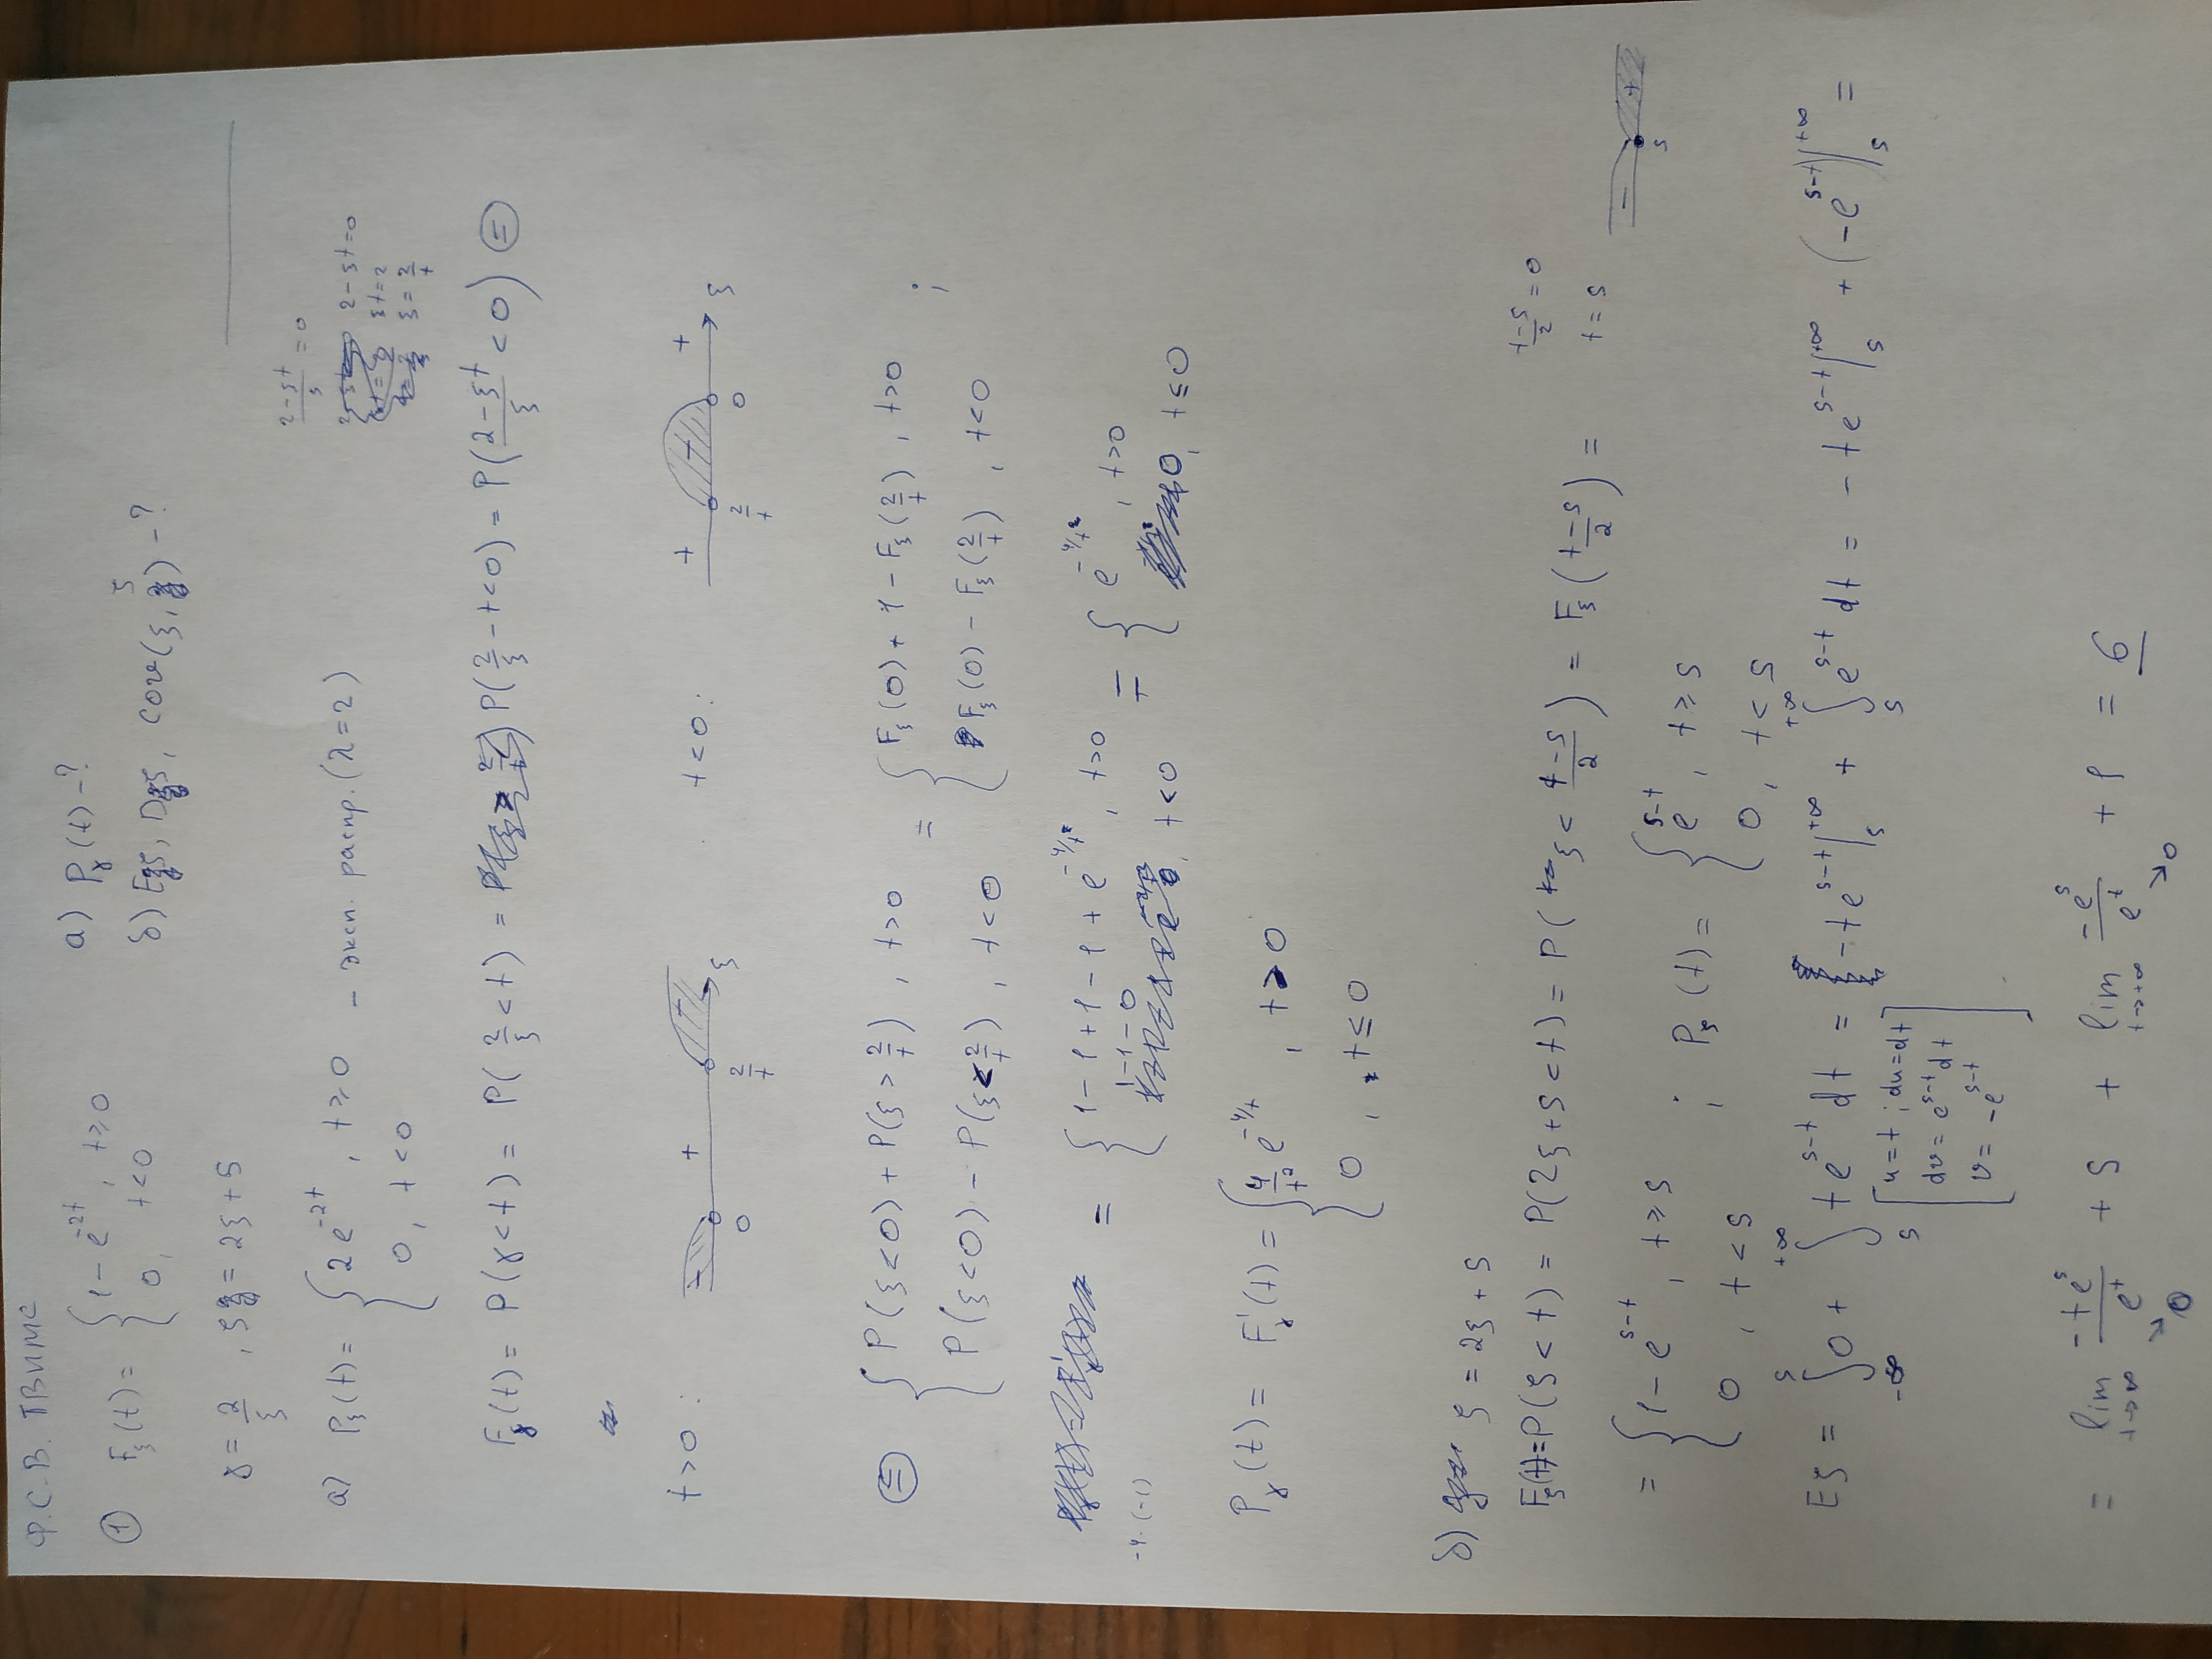 Ф.С.В. ТВИМС
① F_ξ(t) = { 1 - e^{-2t}, t ≥ 0
0, t < 0
а) P_γ(t) - ?
б) Eζ, Dζ, cov(ξ, ζ) - ?
γ = 2/ξ, ζ = 2ξ + 5
(2-ξt)/ξ = 0
2 - ξt = 0
ξt = 2
ξ = 2/t
а) P_ξ(t) = { 2e^{-2t}, t ≥ 0 - эксп. распр. (λ=2)
0, t < 0
F_γ(t) = P(γ < t) = P(2/ξ < t) = P(2/ξ - t < 0) = P((2-ξt)/ξ < 0) ⊜
t > 0 : - + - 0 2/t ξ
t < 0 : + - + 2/t 0 ξ
⊜ { P(ξ<0) + P(ξ > 2/t), t>0 = { F_ξ(0) + 1 - F_ξ(2/t), t>0 ;
P(ξ<0) - P(ξ < 2/t), t<0 F_ξ(0) - F_ξ(2/t), t<0
= { 1 - 1 + 1 - 1 + e^{-4/t}, t>0 = { e^{-4/t}, t>0
1-1-0, t<0 0, t ≤ 0
-4·(-1)
P_γ(t) = F'_γ(t) = { 4/t² e^{-4/t}, t > 0
0, t ≤ 0
б) ζ = 2ξ + 5
F_ζ(t) = P(ζ < t) = P(2ξ + 5 < t) = P(ξ < (t-5)/2) = F_ξ((t-5)/2) =
(t-5)/2 = 0
t = 5
- + 5
= { 1 - e^{5-t}, t ≥ 5 ; P_ζ(t) = { e^{5-t}, t ≥ 5
0, t < 5 0, t < 5
Eζ = ∫_{-∞}^{5} 0 + ∫_{5}^{+∞} t e^{5-t} dt = -t e^{5-t} |_5^{+∞} + ∫_5^{+∞} e^{5-t} dt = -t e^{5-t} |_5^{+∞} + (-e^{5-t}) |_5^{+∞} =
[ u = t ; du = dt
dv = e^{5-t} dt
v = -e^{5-t} ]
= lim_{t→∞} (-t e^5)/e^t + 5 + lim_{t→+∞} (-e^5)/e^t + 1 = 6
↘0 ↘0